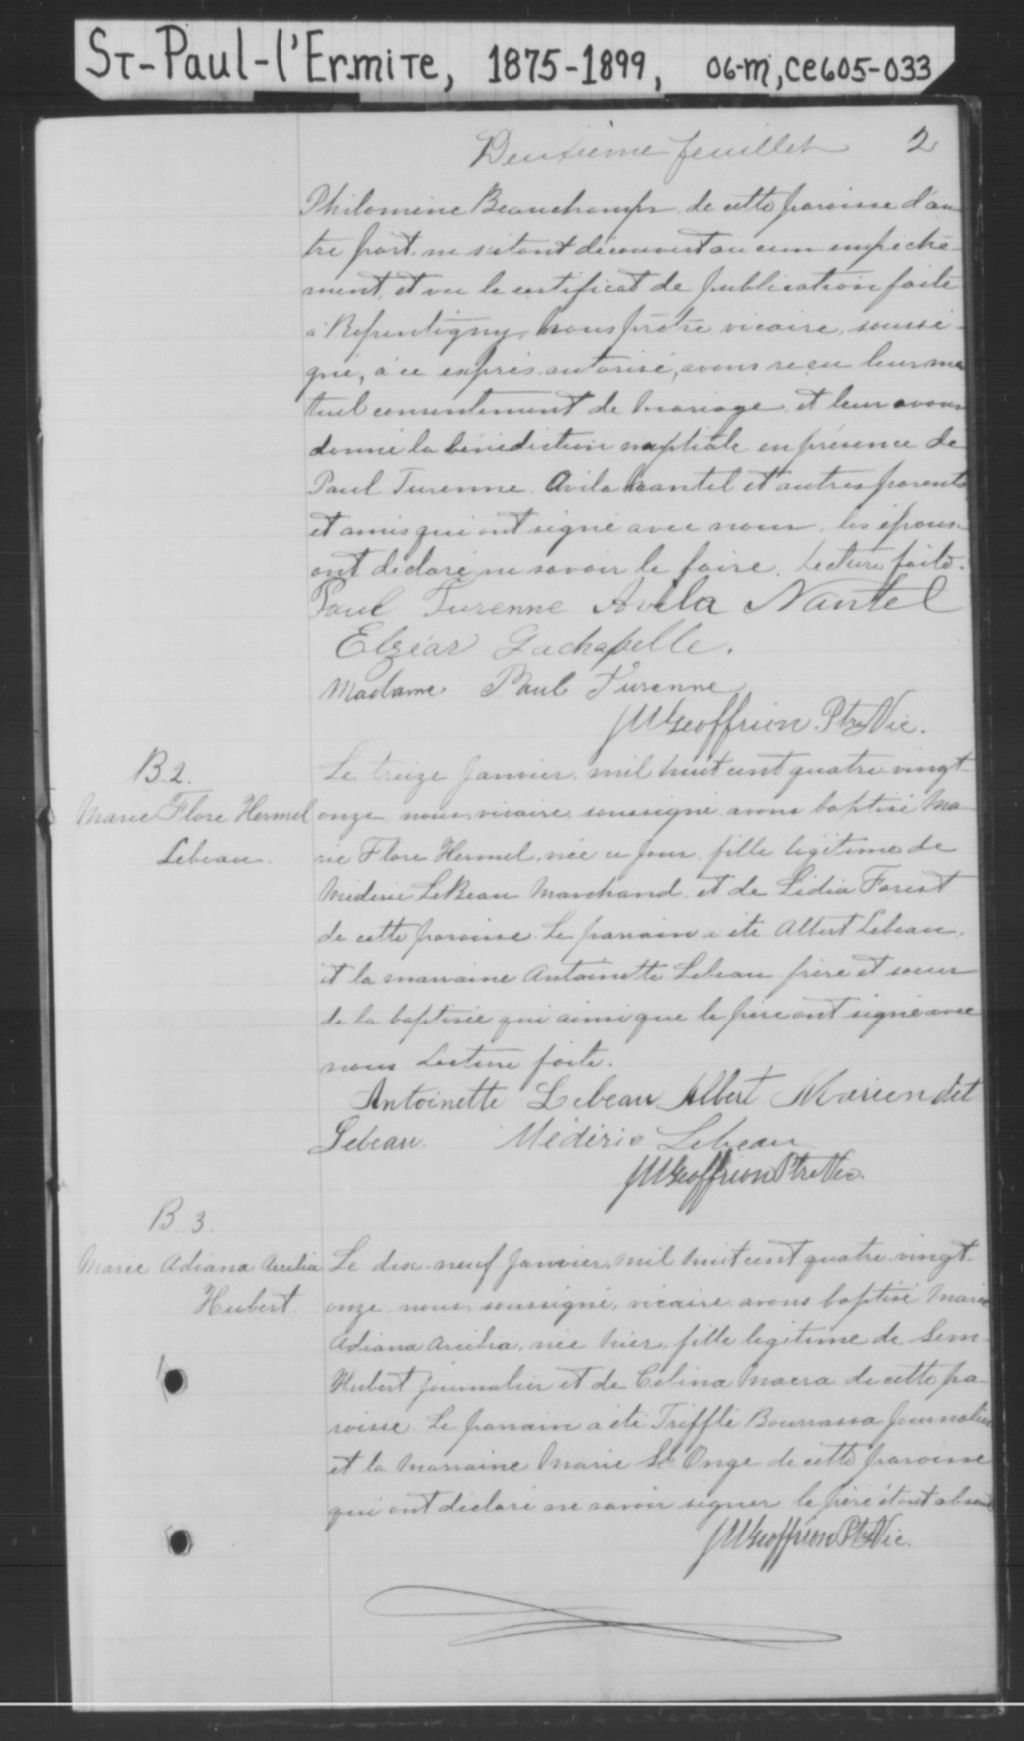 ST-Paul-l'Ermite, 1875-1899, 06-m, CE605-033
Deuxième feuillet 2
Philomène Beauchamps de cette paroisse d'au
tre part, ne s'étant découvert aucun empêche
ment, et vu le certificat de publication faite
à Repentigny, nous prêtre vicaire, soussi-
gné, à ce exprès autorisé, avons reçu leur mu
tuel consentement de mariage et leur avons
donné la bénédiction nuptiale en présence de
Paul Turenne Avila Nantel et autres parents
et amis qui ont signé avec nous. les époux
ont déclaré ne savoir le faire. Lecture faite.
Paul Turenne Avila Nantel
Elzéar Lachapelle.
Madame Paul Turenne
JM Geoffrion Ptre Vic.
B. 2.
Marie Flore Hermel
Lebeau.
Le treize Janvier, mil huit cent quatre vingt
onze nous vicaire soussigné avons baptisé Ma
rie Flore Hermel, née ce jour, fille légitime de
Médéric LeBeau Marchand et de Lidia Forest
de cette paroisse. Le parrain a été Albert Lebeau,
et la marraine Antoinette Lebeau frère et soeur
de la baptisée qui ainsi que le père ont signé avec
nous Lecture faite.
Antoinette Lebeau Albert Marien dit
Lebeau. Médéric Lebeau
JM Geoffrion Ptre Vic.
B. 3.
Marie Adiana Arcilia
Hubert.
Le dix-neuf Janvier, mil huit cent quatre-vingt
onze nous soussigné, vicaire avons baptisé Marie
Adiana Arcilia, née hier, fille légitime de Sem
Hubert journalier et de Célina Macra de cette pa
roisse. Le parrain a été Trifflé Bourrassa Journalier
et la Marraine Marie St Onge de cette paroisse
qui ont déclaré ne savoir signer le père étant absent
JM Geoffrion Ptre Vic.